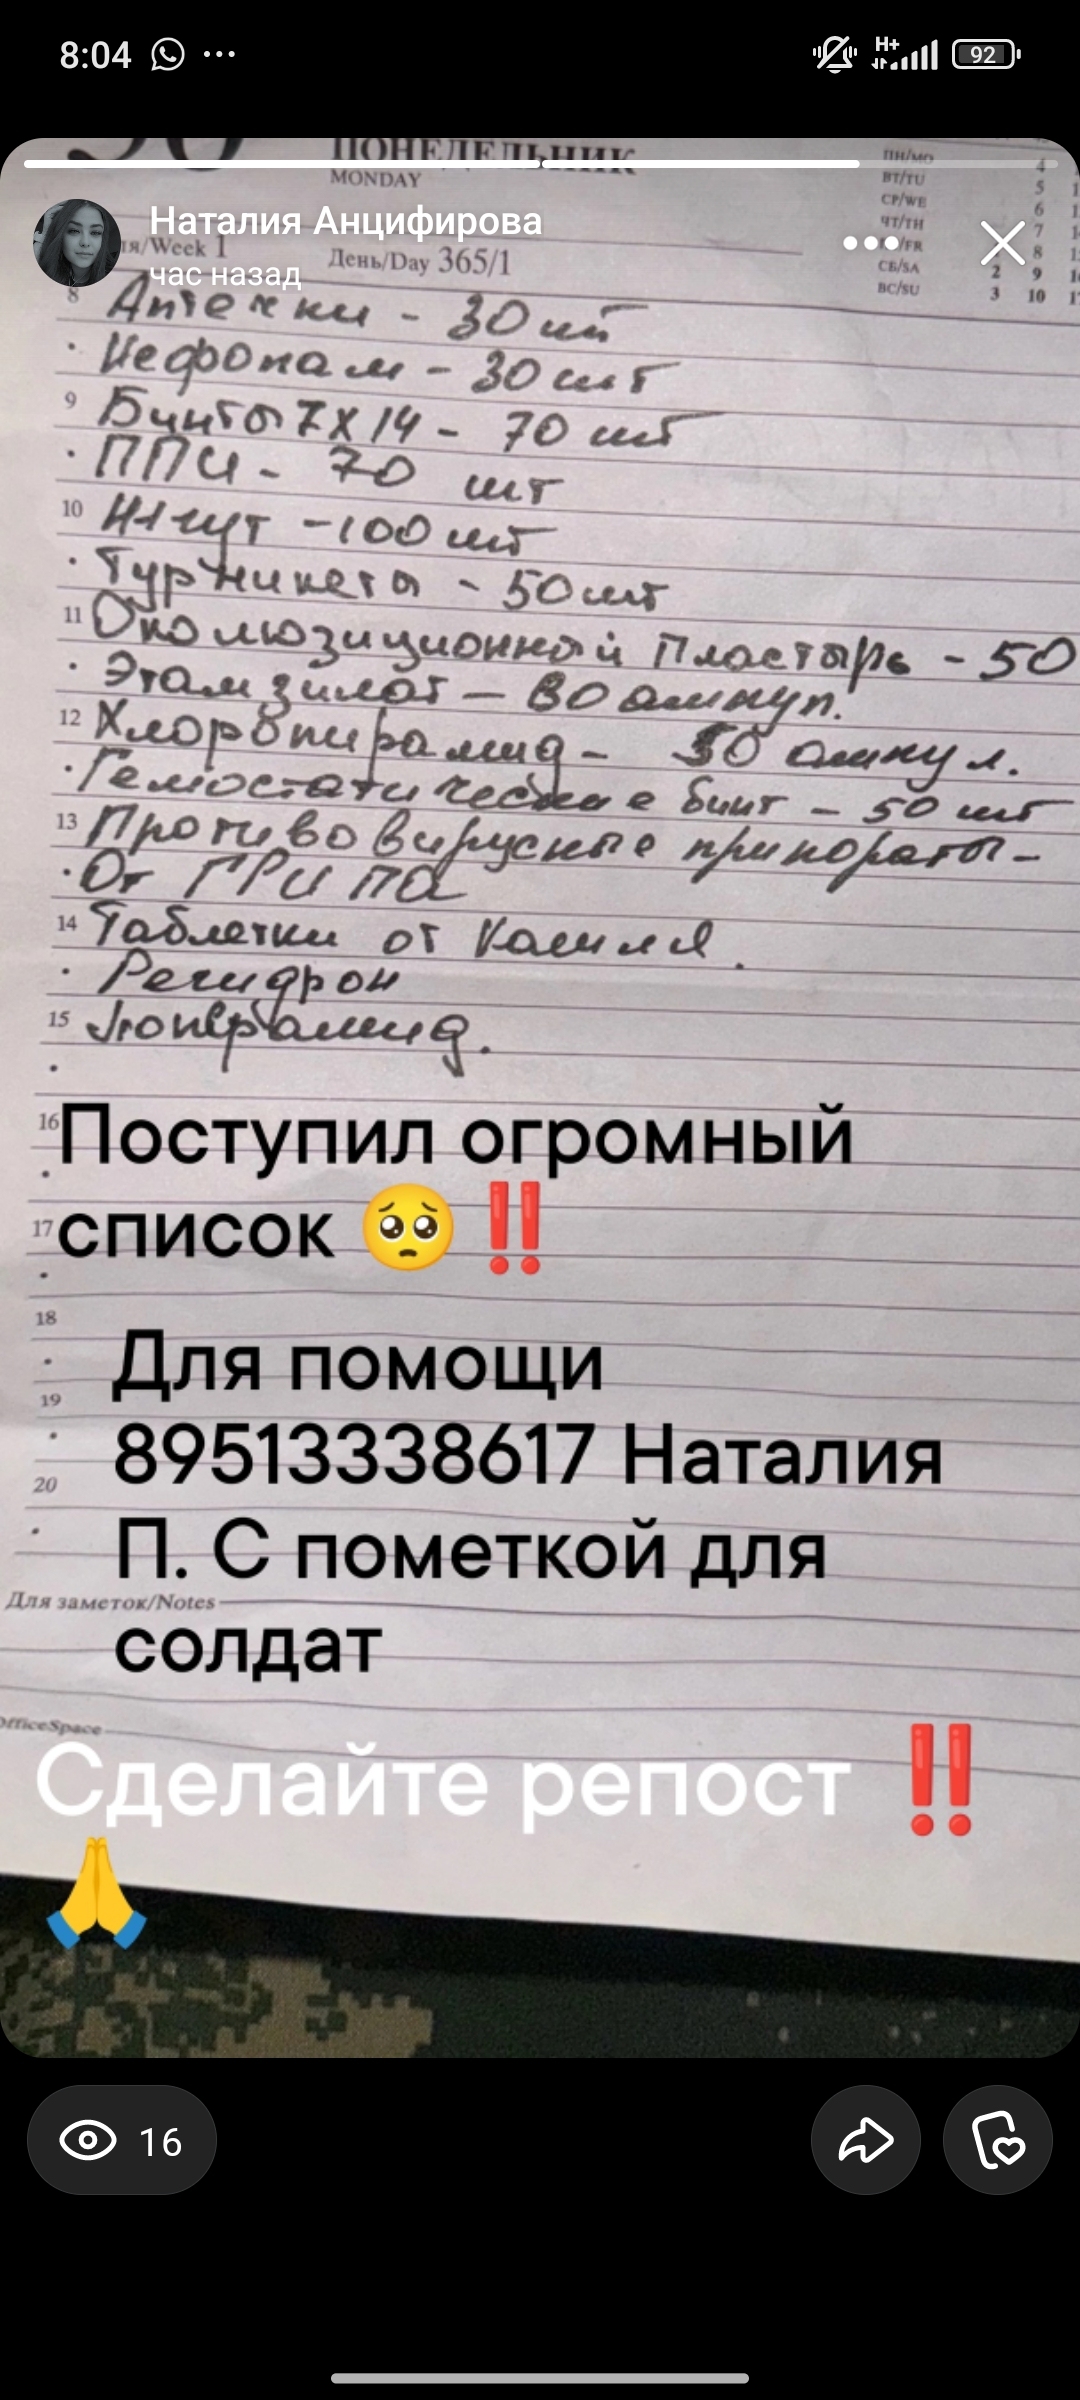 8:04
H+
92
ПОНЕДЕЛЬНИК
MONDAY
Наталия Анцифирова
час назад
ля/Week 1
День/Day 365/1
ПН/MO 4
ВТ/TU 5
СР/WE 6
ЧТ/TH 7
/FR 8
СБ/SA 2 9
ВС/SU 3 10
8 Аптечки - 30 шт
Нефопам - 30 шт
9 Бинты 7х14 - 70 шт
ППИ - 70 шт
10 Жгут - 100 шт
Турникеты - 50 шт
11 Окклюзиционный Пластырь - 50
Этамзилат - 80 ампул.
12 Хлоропирамид - 50 ампул.
Гемостатические бинт - 50 шт
13 Противовирусные припораты -
От ГРИППа
14 Таблетки от Кашля.
Регидрон
15 Лоперамид.
16 Поступил огромный
17 список 🥺‼️
18
Для помощи
19
89513338617 Наталия
20
П. С пометкой для
Для заметок/Notes
солдат
OfficeSpace
Сделайте репост ‼️
🙏
16